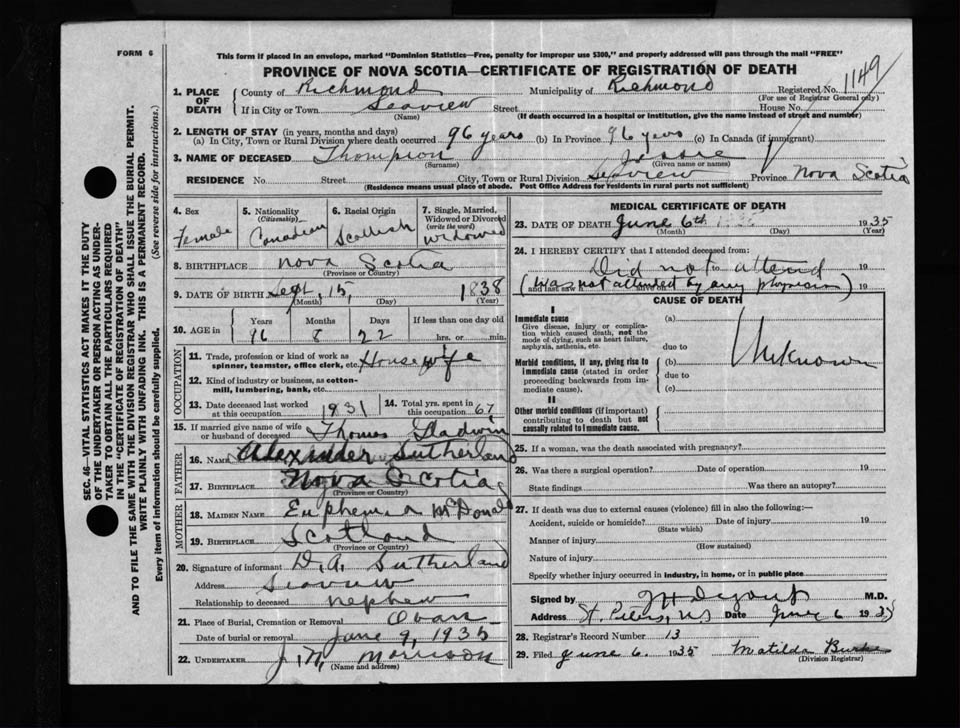 FORM 6
This form if placed in an envelope, marked "Dominion Statistics—Free, penalty for improper use $300," and properly addressed will pass through the mail "FREE"
PROVINCE OF NOVA SCOTIA—CERTIFICATE OF REGISTRATION OF DEATH
1149
SEC. 46—VITAL STATISTICS ACT MAKES IT THE DUTY
OF THE UNDERTAKER OR PERSON ACTING AS UNDER-
TAKER TO OBTAIN ALL THE PARTICULARS REQUIRED
IN THE "CERTIFICATE OF REGISTRATION OF DEATH"
AND TO FILE THE SAME WITH THE DIVISION REGISTRAR WHO SHALL ISSUE THE BURIAL PERMIT.
WRITE PLAINLY WITH UNFADING INK. THIS IS A PERMANENT RECORD.
Every item of information should be carefully supplied. (See reverse side for instructions.)
1. PLACE OF DEATH County of Richmond Municipality of Richmond Registered No.
(For use of Registrar General only)
If in City or Town Seaview Street House No.
(Name) (If death occurred in a hospital or institution, give the name instead of street and number)
2. LENGTH OF STAY (in years, months and days)
(a) In City, Town or Rural Division where death occurred 96 years (b) In Province 96 years (c) In Canada (if immigrant)
3. NAME OF DECEASED Thompson
(Surname) (Given name or names)
RESIDENCE No. Street City, Town or Rural Division Seaview Province Nova Scotia
(Residence means usual place of abode. Post Office Address for residents in rural parts not sufficient)
4. Sex Female
5. Nationality (Citizenship) Canadian
6. Racial Origin Scottish
7. Single, Married, Widowed or Divorced (write the word) Widowed
8. BIRTHPLACE Nova Scotia
(Province or Country)
9. DATE OF BIRTH Sept, 15, 1838
(Month) (Day) (Year)
10. AGE in Years Months Days If less than one day old
96 8 22 hrs. or min.
OCCUPATION
11. Trade, profession or kind of work as spinner, teamster, office clerk, etc. Housewife
12. Kind of industry or business, as cotton-mill, lumbering, bank, etc.
13. Date deceased last worked at this occupation 1931
14. Total yrs. spent in this occupation 67
15. If married give name of wife or husband of deceased Thomas
FATHER
16. NAME Alexander Sutherland
17. BIRTHPLACE Nova Scotia
(Province or Country)
MOTHER
18. MAIDEN NAME Euphemia McDonald
19. BIRTHPLACE Scotland
(Province or Country)
20. Signature of informant D. A. Sutherland
Address Seaview
Relationship to deceased nephew
21. Place of Burial, Cremation or Removal Oban
Date of burial or removal June 9, 1935
22. UNDERTAKER J. N. Morrison
(Name and address)
MEDICAL CERTIFICATE OF DEATH
23. DATE OF DEATH June 6th 1935
(Month) (Day) (Year)
24. I HEREBY CERTIFY that I attended deceased from:
Did not attend 19
(Was not attended by any physician) 19
CAUSE OF DEATH
I
Immediate cause
Give disease, injury or complication which caused death, not the mode of dying, such as heart failure, asphyxia, asthenia, etc.
(a)
due to
Unknown
Morbid conditions, if any, giving rise to immediate cause (stated in order proceeding backwards from immediate cause).
(b)
due to
(c)
II
Other morbid conditions (if important) contributing to death but not causally related to immediate cause.
25. If a woman, was the death associated with pregnancy?
26. Was there a surgical operation? Date of operation 19
State findings Was there an autopsy?
27. If death was due to external causes (violence) fill in also the following:—
Accident, suicide or homicide? Date of injury 19
(State which)
Manner of injury
(How sustained)
Nature of injury
Specify whether injury occurred in industry, in home, or in public place
Signed by M.D.
Address St. Peters, N.S Date June 6 1935
28. Registrar's Record Number 13
29. Filed June 6. 1935 Matilda Burke
(Division Registrar)